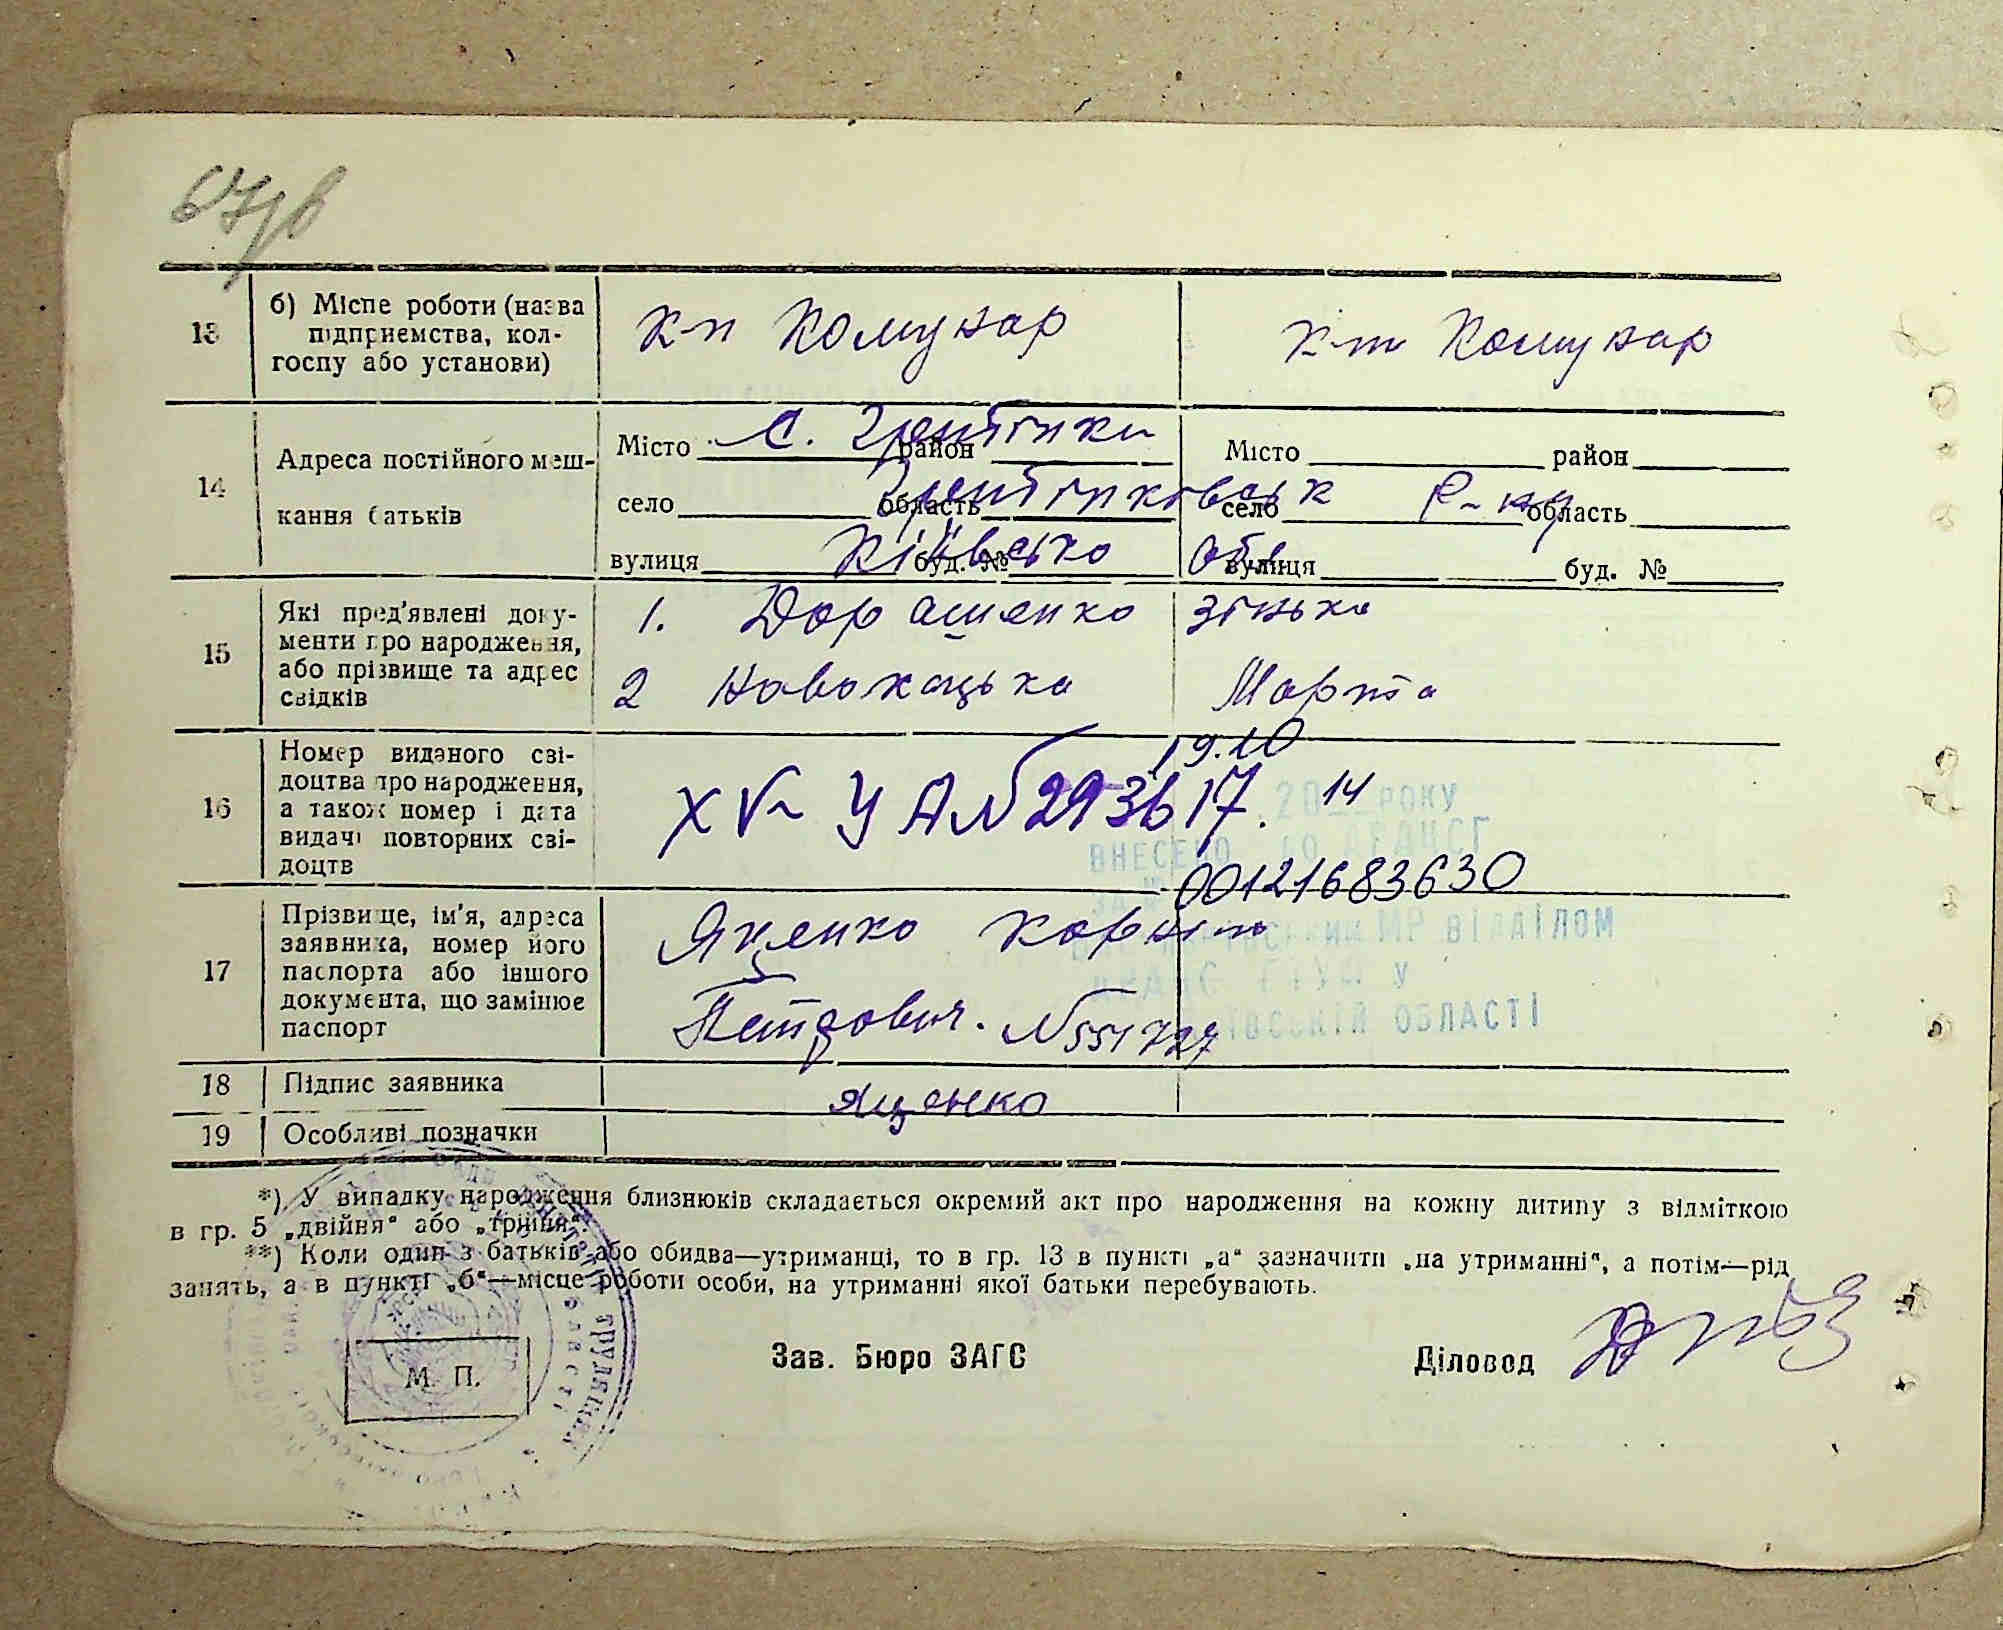 67зв
13
б) Місце роботи (назва
підприємства, кол-
госпу або установи)
к-п Комунар
к-т Комунар
14
Адреса постійного меш-
кання батьків
Місто с. Гребінки район
Місто район
село Гребінківськ область
село р-ну область
вулиця Київсько буд. №
обл. вулиця буд. №
15
Які пред'явлені доку-
менти про народження,
або прізвище та адрес
свідків
1. Дорошенко Зінька
2 Новохацька Марта
16
Номер виданого сві-
доцтва про народження,
а також номер і дата
видачі повторних сві-
доцтв
19.10
УА №293617.
20 14 РОКУ
ВНЕСЕНО ДО ДРАЦСГ
ЗА № 00121683630
МР ВІДДІЛОМ
У
ОБЛАСТІ
17
Прізвище, ім'я, адреса
заявника, номер його
паспорта або іншого
документа, що замінює
паспорт
Яценко Корній
Петрович. №551727
18
Підпис заявника
Яценко
19
Особливі позначки
*) У випадку народження близнюків складається окремий акт про народження на кожну дитину з відміткою
в гр. 5 „двійня“ або „трійня“.
**) Коли один з батьків або обидва—утриманці, то в гр. 13 в пункті „а“ зазначити „на утриманні“, а потім—рід
занять, а в пункті „б“—місце роботи особи, на утриманні якої батьки перебувають.
М. П.
Зав. Бюро ЗАГС
Діловод